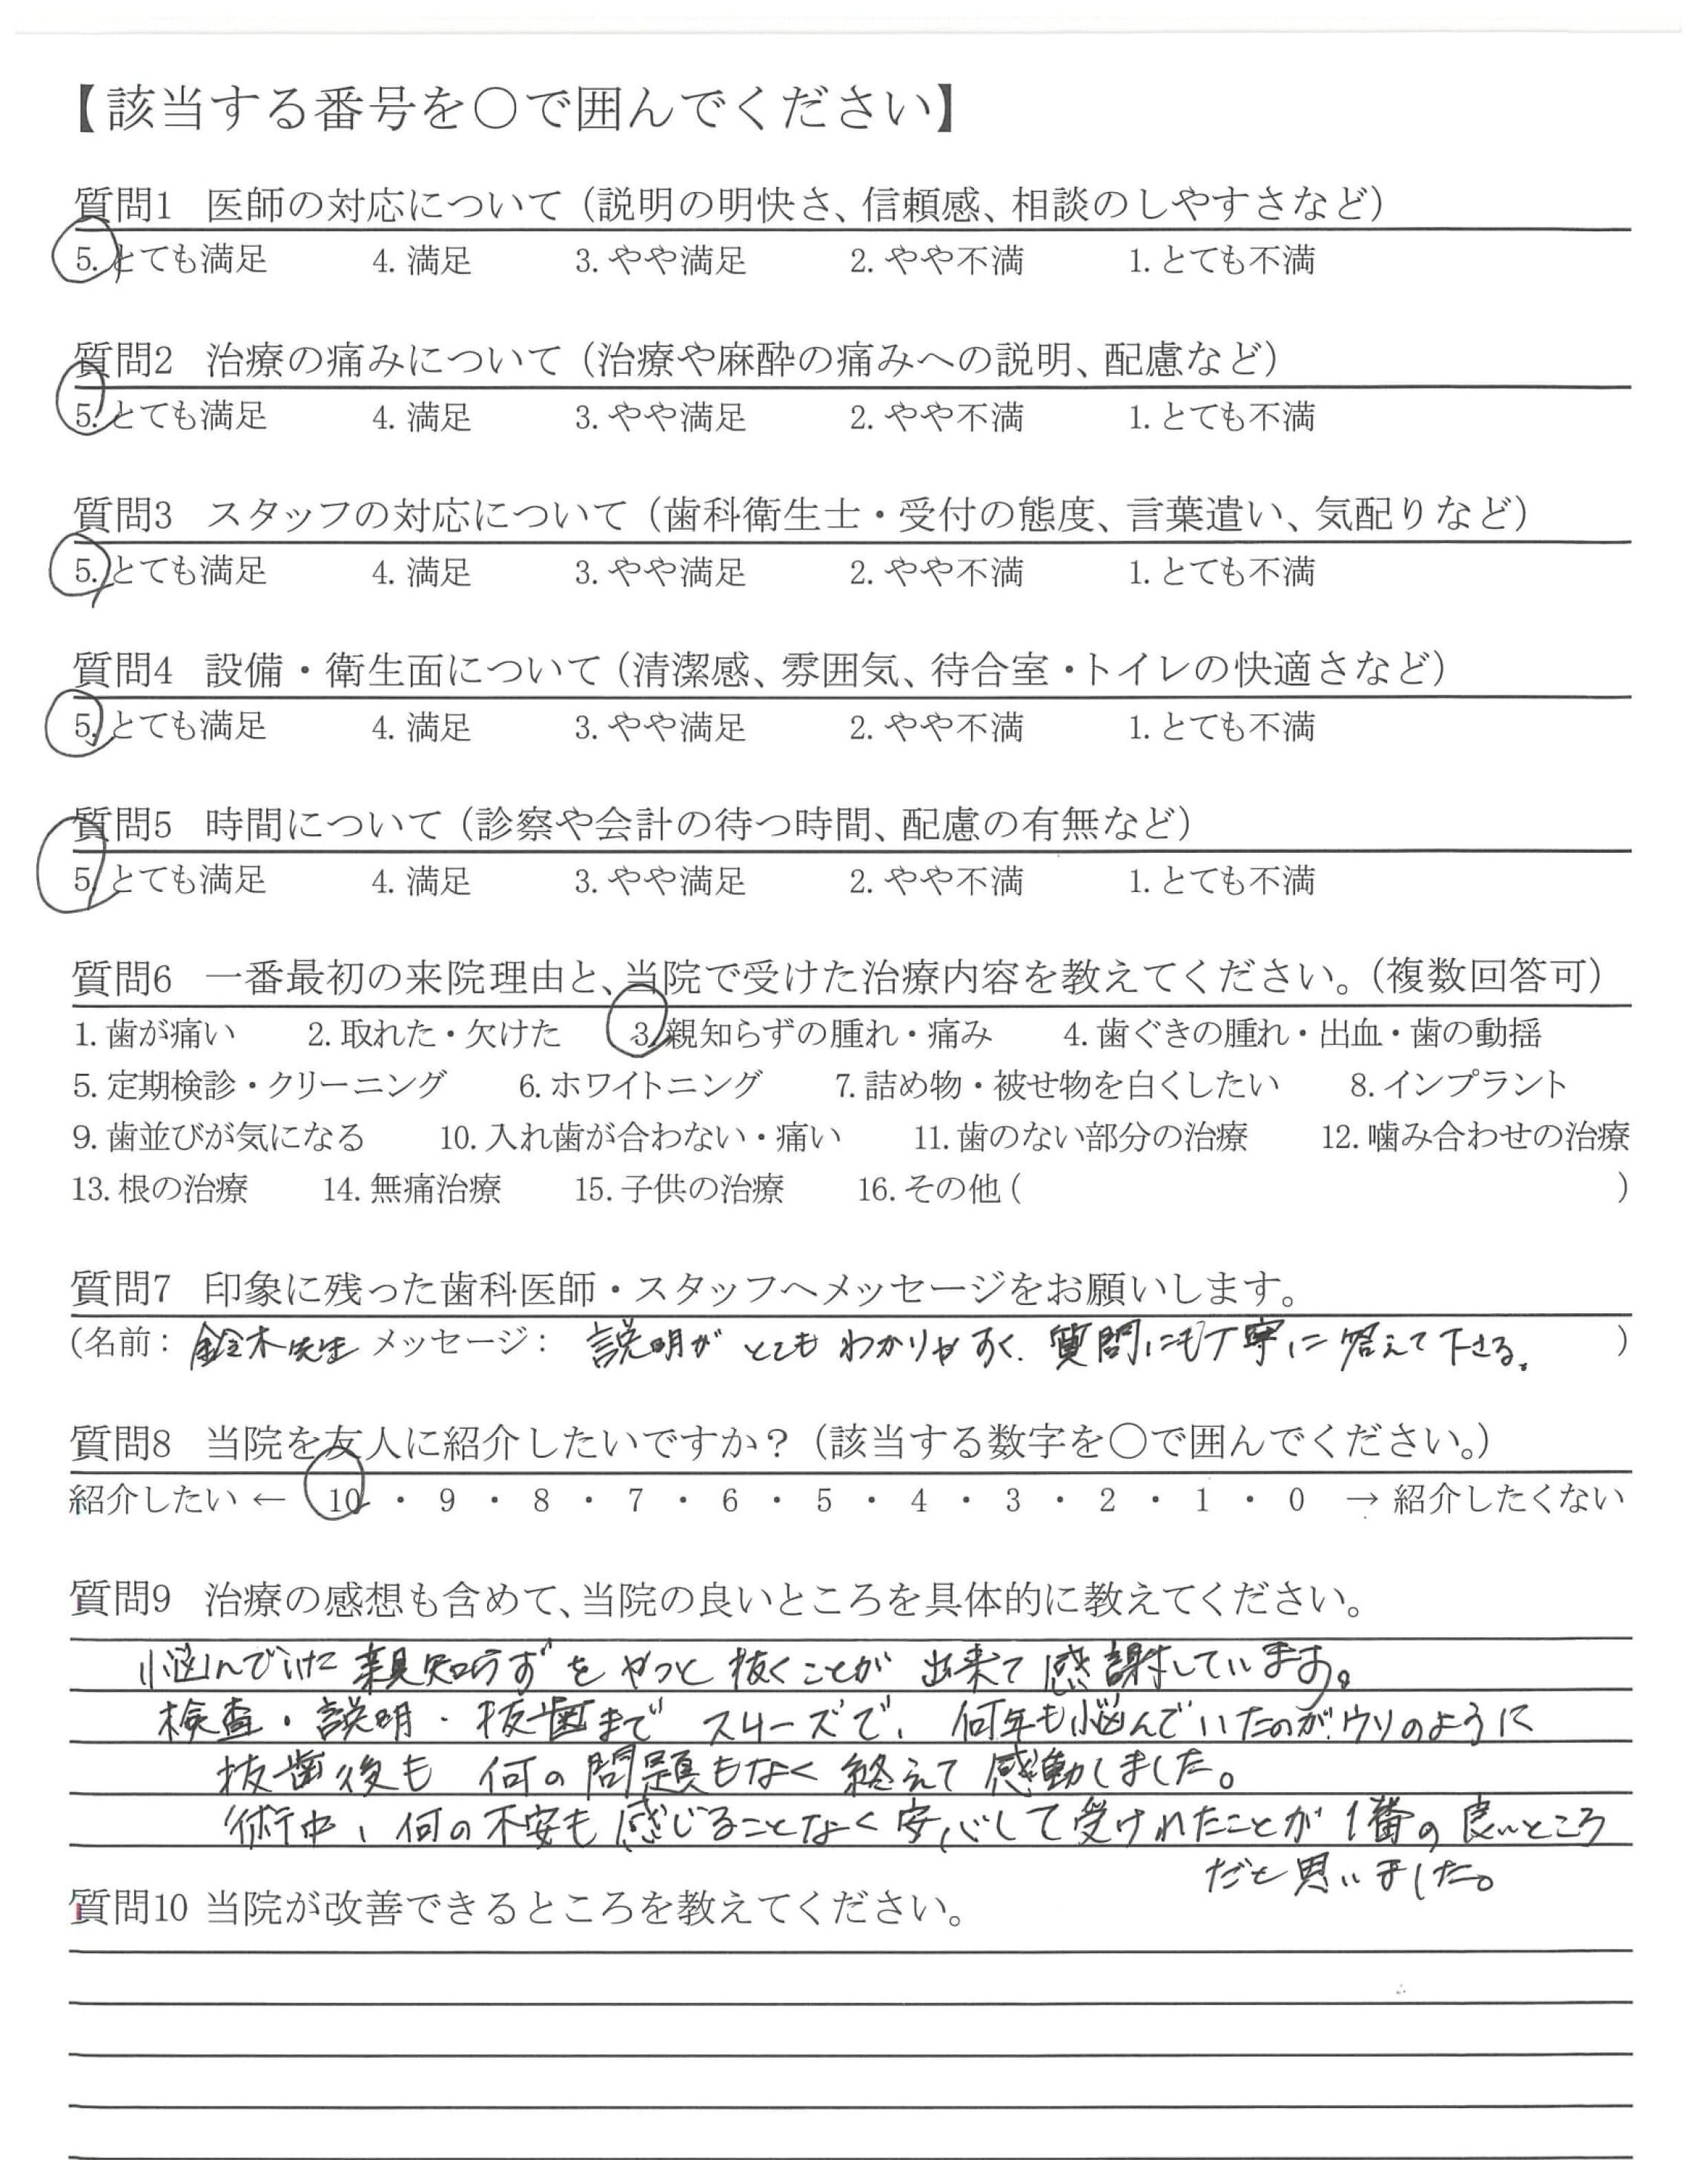 【該当する番号を○で囲んでください】
質問1 医師の対応について（説明の明快さ、信頼感、相談のしやすさなど）
5.とても満足 4.満足 3.やや満足 2.やや不満 1.とても不満
質問2 治療の痛みについて（治療や麻酔の痛みへの説明、配慮など）
5.とても満足 4.満足 3.やや満足 2.やや不満 1.とても不満
質問3 スタッフの対応について（歯科衛生士・受付の態度、言葉遣い、気配りなど）
5.とても満足 4.満足 3.やや満足 2.やや不満 1.とても不満
質問4 設備・衛生面について（清潔感、雰囲気、待合室・トイレの快適さなど）
5.とても満足 4.満足 3.やや満足 2.やや不満 1.とても不満
質問5 時間について（診察や会計の待つ時間、配慮の有無など）
5.とても満足 4.満足 3.やや満足 2.やや不満 1.とても不満
質問6 一番最初の来院理由と、当院で受けた治療内容を教えてください。（複数回答可）
1.歯が痛い 2.取れた・欠けた 3.親知らずの腫れ・痛み 4.歯ぐきの腫れ・出血・歯の動揺
5.定期検診・クリーニング 6.ホワイトニング 7.詰め物・被せ物を白くしたい 8.インプラント
9.歯並びが気になる 10.入れ歯が合わない・痛い 11.歯のない部分の治療 12.噛み合わせの治療
13.根の治療 14.無痛治療 15.子供の治療 16.その他（ ）
質問7 印象に残った歯科医師・スタッフへメッセージをお願いします。
（名前：鈴木先生 メッセージ：説明がとてもわかりやすく、質問にも丁寧に答えて下さる。）
質問8 当院を友人に紹介したいですか？（該当する数字を○で囲んでください。）
紹介したい ← 10 ・ 9 ・ 8 ・ 7 ・ 6 ・ 5 ・ 4 ・ 3 ・ 2 ・ 1 ・ 0 → 紹介したくない
質問9 治療の感想も含めて、当院の良いところを具体的に教えてください。
悩んでいた親知らずをやっと抜くことが出来て感謝しています。
検査・説明・抜歯までスムーズで、何年も悩んでいたのがウソのように
抜歯後も何の問題もなく終えて感動しました。
術中、何の不安も感じることなく安心して受けれたことが1番の良いところ
だと思いました。
質問10 当院が改善できるところを教えてください。